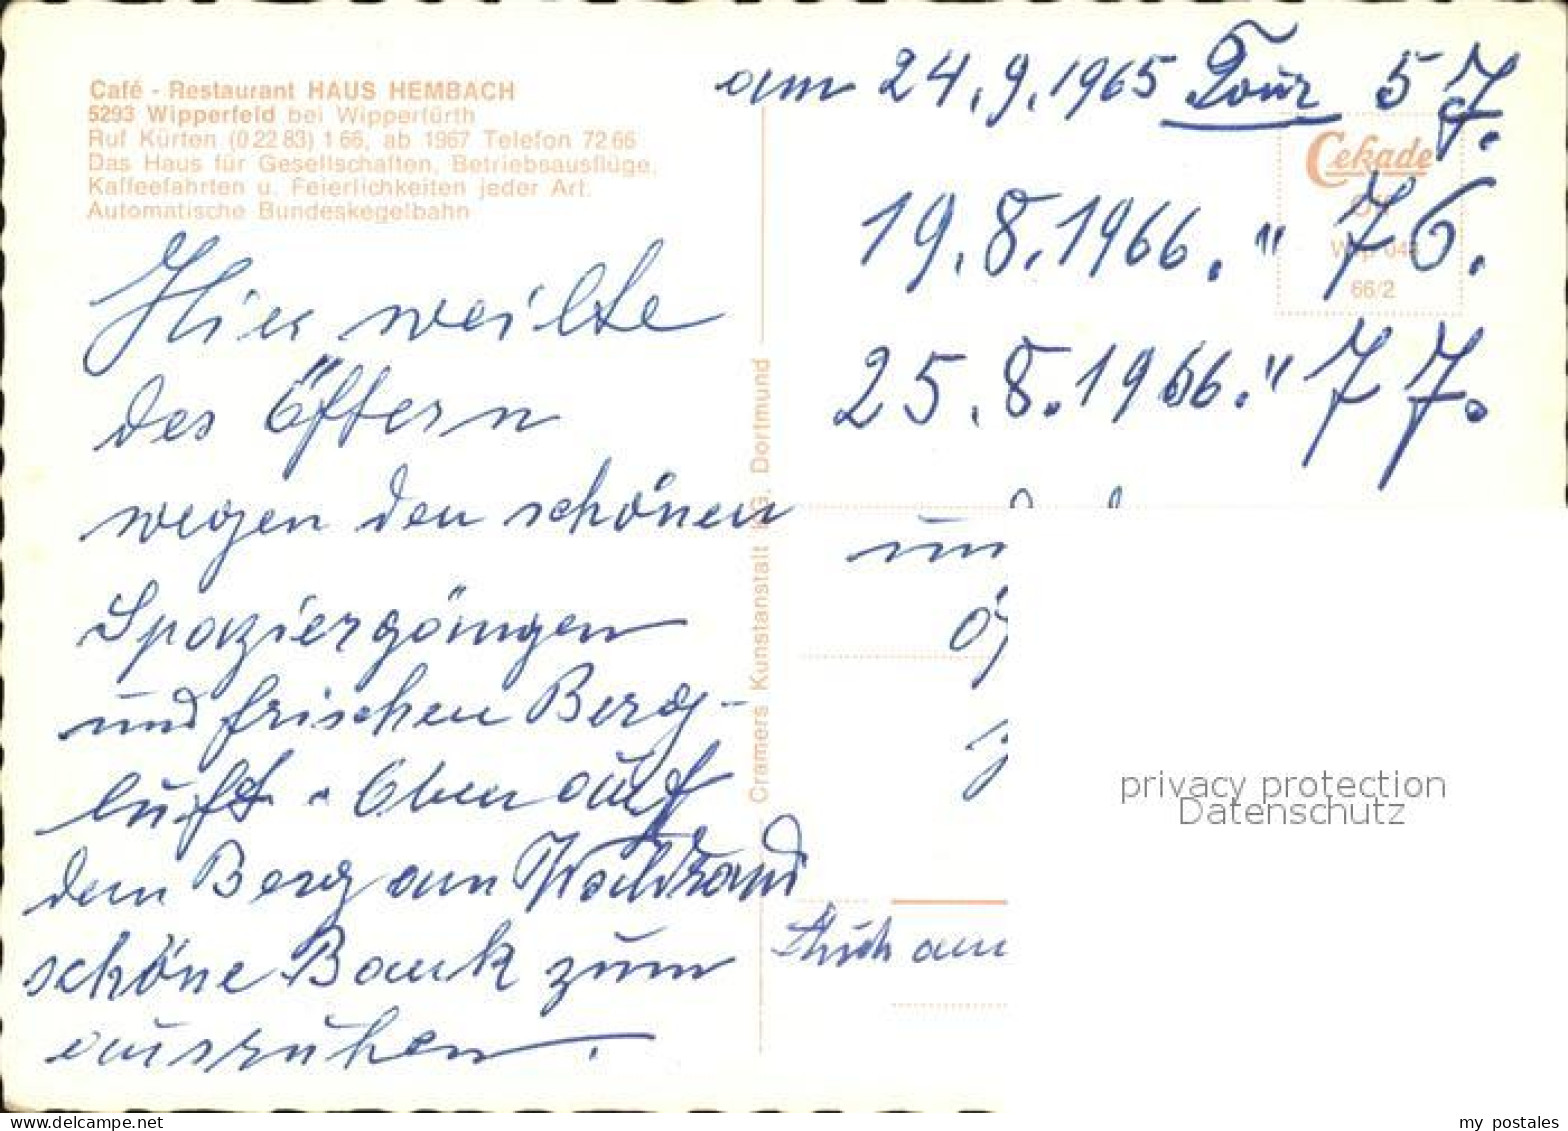 Café - Restaurant HAUS HEMBACH
5293 Wipperfeld bei Wipperfürth
Ruf Kürten (0 22 83) 1 66, ab 1967 Telefon 72 66
Das Haus für Gesellschaften, Betriebsausflüge,
Kaffeefahrten u. Feierlichkeiten jeder Art.
Automatische Bundeskegelbahn
Hier weilte
des öftern
wegen den schönen
Spaziergängen
und frischen Berg-
luft. Oben auf
dem Berg am Waldrand
schöne Bank zum
ausruhen.
Cramers Kunstanstalt KG. Dortmund
am 24.9.1965 Tour 57.
19.8.1966. " 76.
25.8.1966. " 77.
Cekade
66/2
Auch am
privacy protection
Datenschutz
my postales